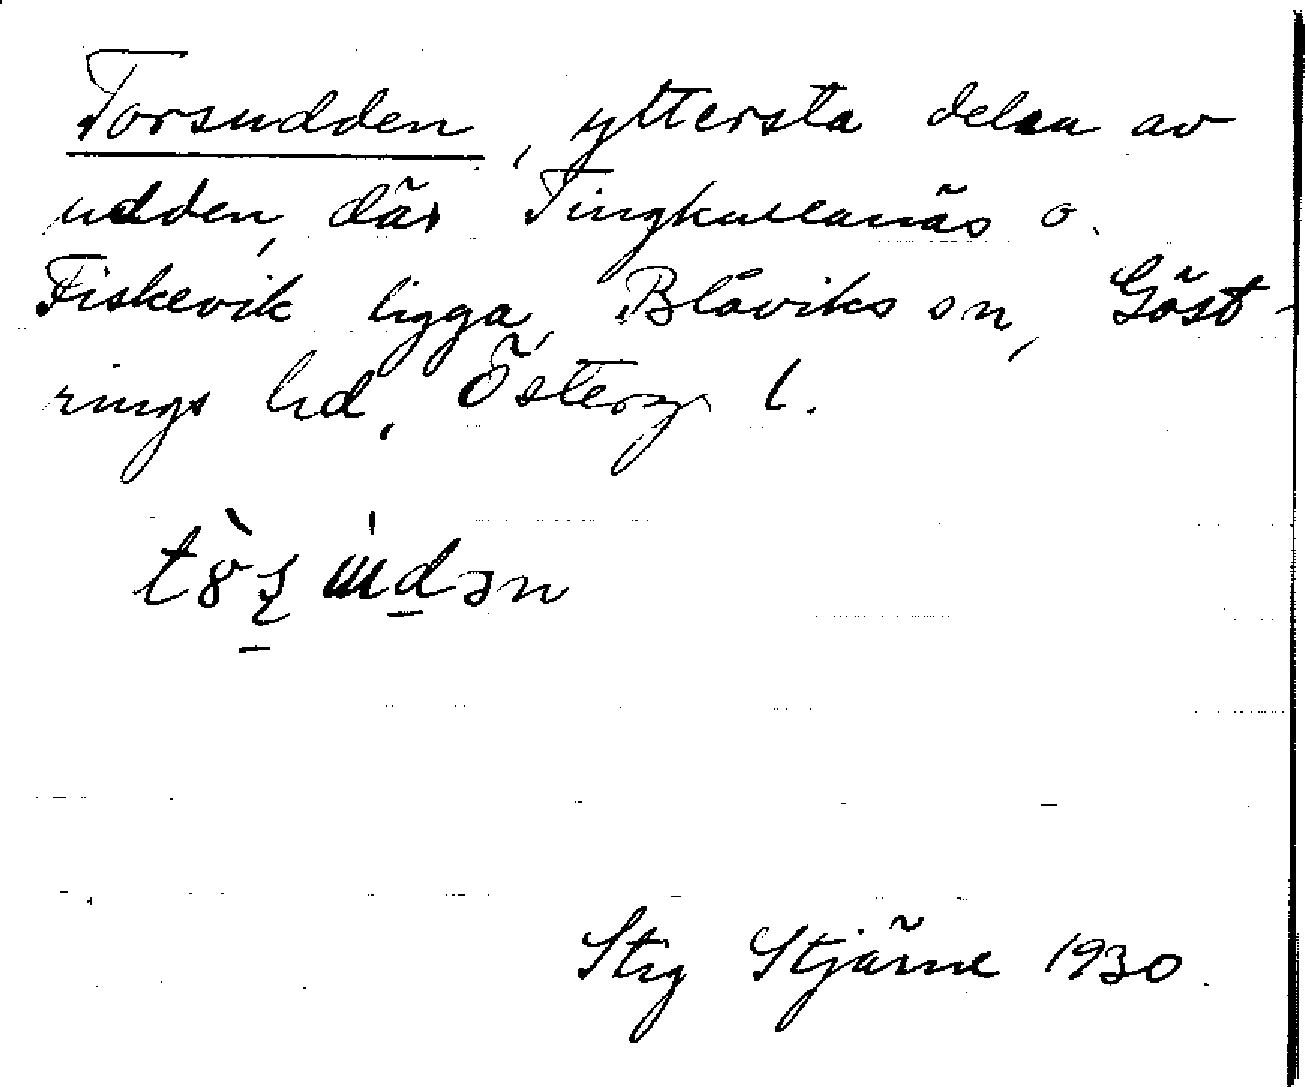 Torsudden, yttersta delen av
udden, där Tingkullanäs o.
Fiskevik ligga, Blåviks sn, Göst-
rings hd, Österg. l.
Stig Stjärne 1930.